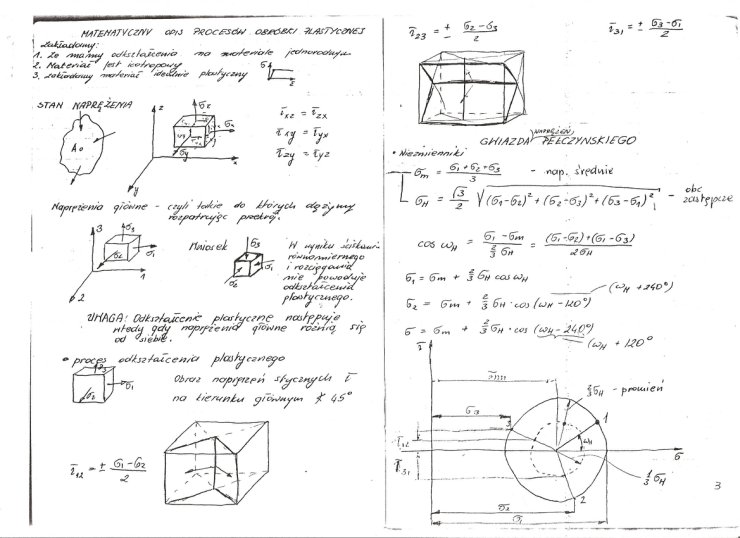 MATEMATYCZNY OPIS PROCESÓW OBRÓBKI PLASTYCZNEJ
Zakładamy:
1. Że mamy odkształcenia na materiale jednorodnym
2. Materiał jest izotropowy
3. zakładamy materiał idealnie plastyczny
σ
ε
STAN NAPRĘŻENIA
A
z
x
y
σz
σx
σy
τxz = τzx
τxy = τyx
τzy = τyz
Naprężenia główne - czyli takie do których dążymy
rozpatrując przekrój.
3
1
2
σ3
σ1
σ2
Wniosek
σ3
σ1
σ2
W wyniku ściskania
równomiernego
i rozciągania
nie powoduje
odkształcenia
plastycznego.
UWAGA! Odkształcenie plastyczne następuje
wtedy gdy naprężenia główne różnią się
od siebie.
• proces odkształcenia plastycznego
σ3
σ1
σ2
Obraz naprężeń stycznych τ
na kierunku głównym ∢ 45°
τ12 = ± (σ1 - σ2)/2
τ23 = ± (σ2 - σ3)/2
τ31 = ± (σ3 - σ1)/2
GWIAZDA NAPRĘŻEŃ PEŁCZYŃSKIEGO
• Niezmienniki
σm = (σ1 + σ2 + σ3)/3 - nap. średnie
σH = √3/2 √((σ1-σ2)² + (σ2-σ3)² + (σ3-σ1)²) - obc zastępcze
cos ωH = (σ1 - σm)/(2/3 σH) = ((σ1-σ2)+(σ1-σ3))/(2σH)
σ1 = σm + 2/3 σH cos ωH
(ωH + 240°)
σ2 = σm + 2/3 σH · cos (ωH - 120°)
σ = σm + 2/3 σH · cos (ωH - 240°)
(ωH + 120°)
τ
σm
2/3 σH - promień
σ3
3
1
ωH
τ12
τ31
σ
1/3 σH
2
σ2
σ1
3